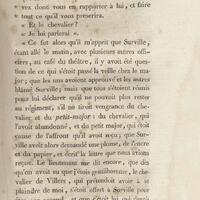 vez donc vous en rapporter à lui, et faire
« tout ce qu'il vous prescrira.
« Et le chevalier?
« Je lui parlerai ».
« Ce fut alors qu'il m'apprit que Surville,
étant allé le matin, avec plusieurs autres offi-
ciers, au café du théâtre, il y avoit été ques-
tion de ce qui s'étoit passé la veille chez le ma-
jor; que les uns avoient approuvé et les autres
blâmé Surville; mais que tous s'étoient réunis
pour lui déclarer qu'il ne pouvoit plus rester
au régiment, s'il ne tiroit vengeance du che-
valier et du petit-major: du chevalier, qui
l'avoit abandonné, et du petit major, qui étoit
cause de l'affront qu'il avoit reçu; que Sur-
ville avoit alors demandé une plume, de l'encre
et du papier, et écrit la lettre que nous avions
reçue. Le lieutenant me dit encore, que dès
qu'on avoit su que j'étois gentilhomme, le che-
valier de Villers, qui prétendoit avoir à se
plaindre de moi, s'étoit offert à Surville pour